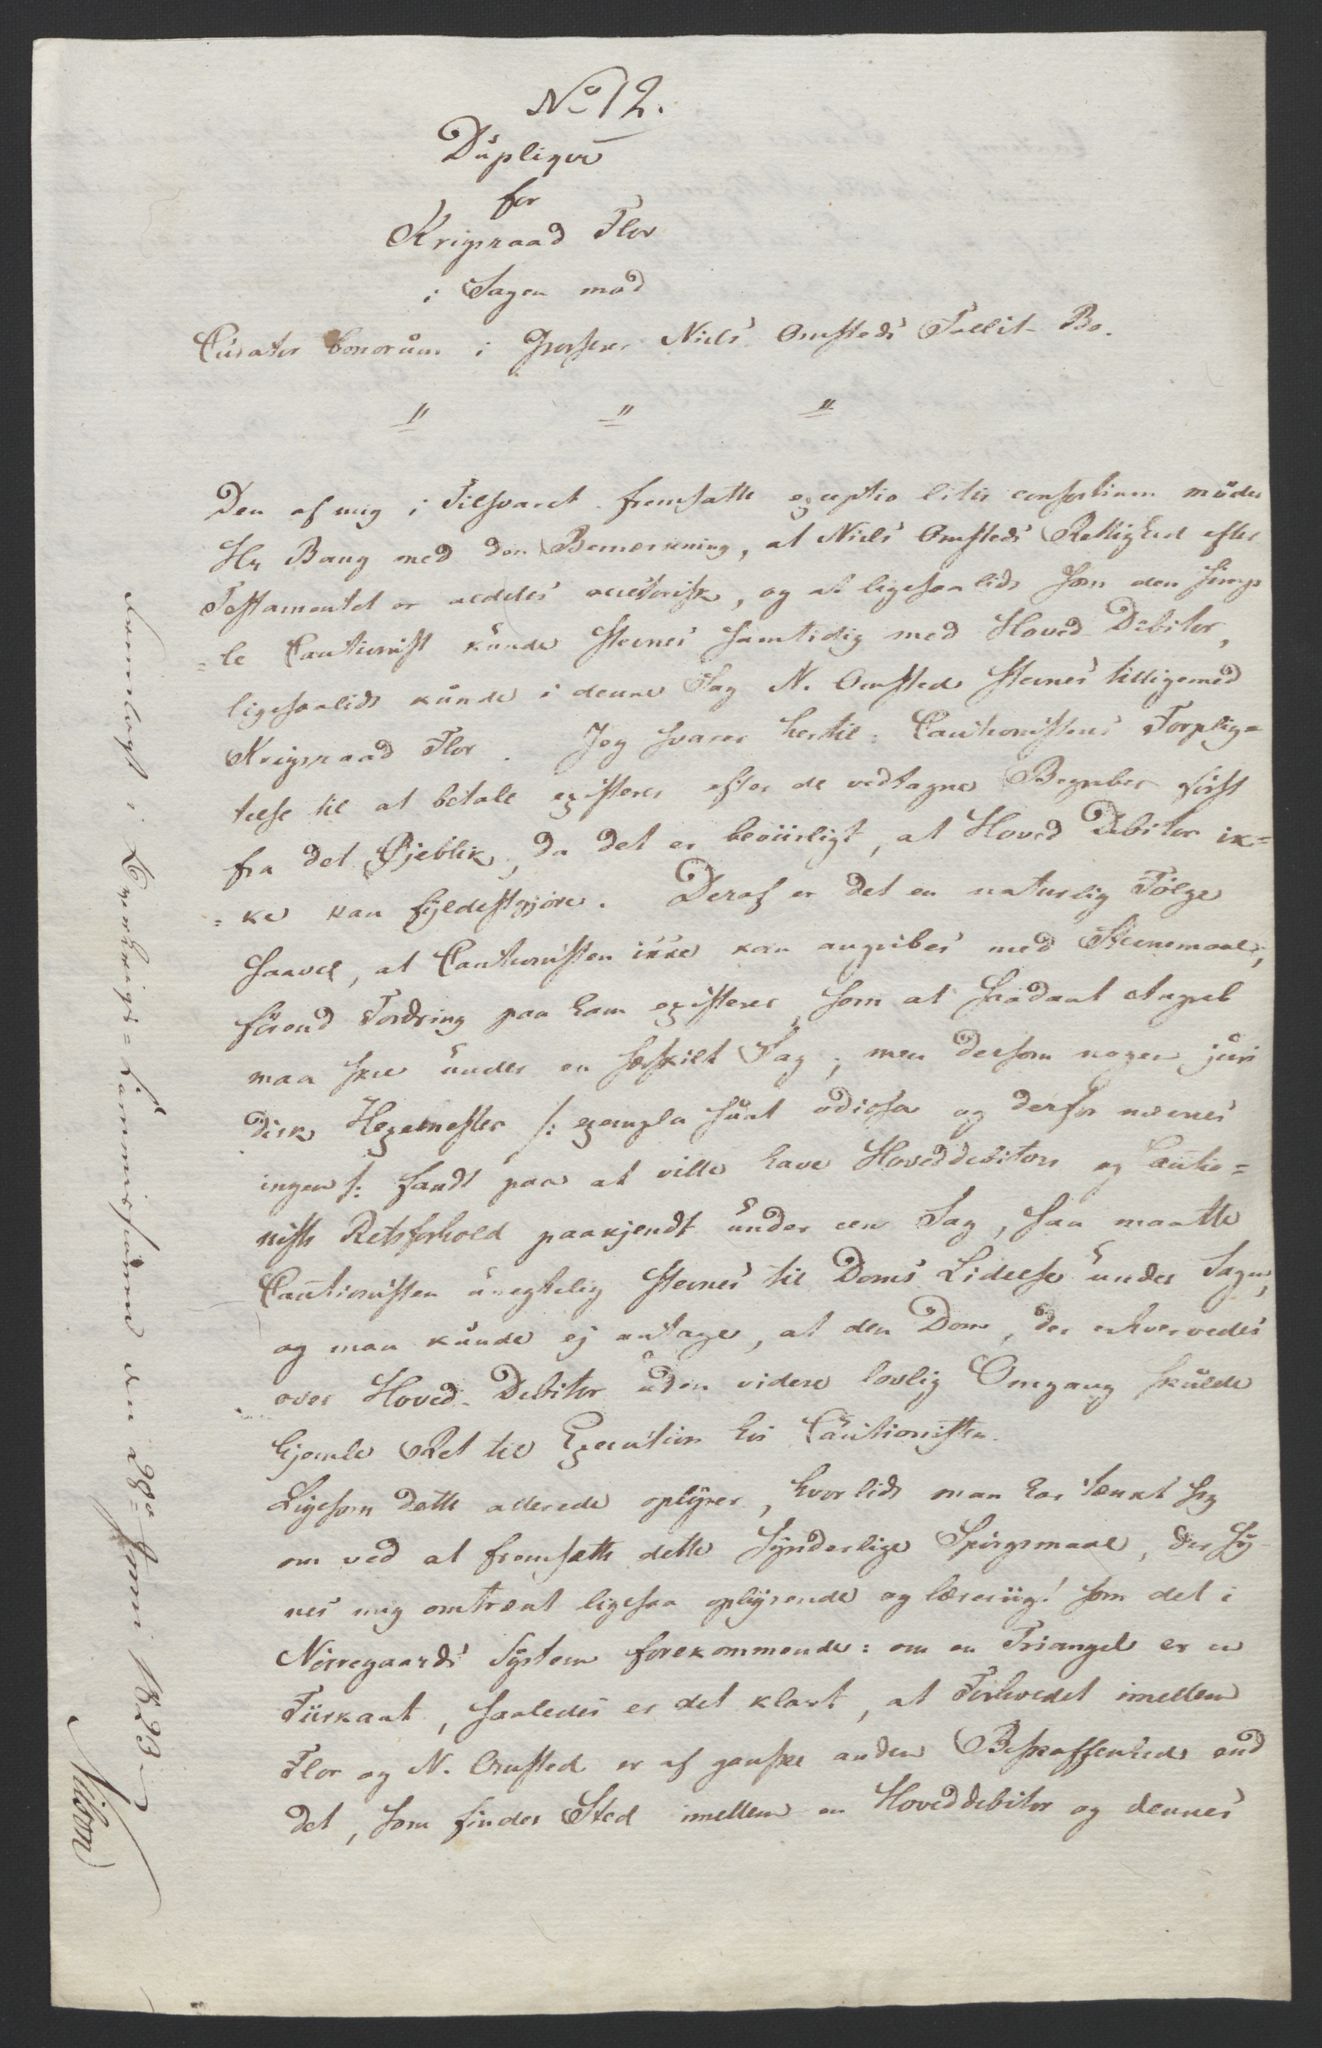 No 12.
Duplique
for
Krigsraad Flor
i Sagen mod
Curator bonorum i Grosserer Niels Omsteds Fallit-Bo.
" " "
Den af mig i Tilsvaret fremsatte exceptio litis consortium møder
Hr Bang med den Bemærkning, at Niels Omsteds Rettighed efter
Testamentet er aldeles accessorisk, og at ligesaalidt som den simp
=le Cautionist kunde stevnes samtidig med Hoved-Debitor,
ligesaalidt kunde i denne Sag N. Omsted stevnes tilligemed
Krigsraad Flor. Jeg svarer hertil: Cautionistens Forplig=
telse til at betale existerer efter de vedtagne Begreber først
fra det Øjeblik, da det er beviisligt, at Hoved Debitor ik=
=ke kan fyldestgjøre. Deraf er det en naturlig Følge
saavel, at Cautionisten ikke kan angribes med Stevnemaal,
førend Fordring paa ham existerer, som at saadant Angreb
maa skee under en særskilt Sag; men dersom nogen juri
disk Hexemester /: exempla sunt odiosa og derfor nævnes
ingen :/ fandt paa at ville have Hoveddebitors og Cautio=
nists Retsforhold paakjendt under een Sag, saa maatte
Cautionisten unegtelig stevnes til Doms Lidelse under Sagen,
og man kunde ej antage, at den Dom, der erhvervedes
over Hoved-Debitor uden videre lovlig Omgang skulde
hjemle Ret til Execution hos Cautionisten.
Ligesom dette allerede oplyser, hvor lidt man har tænkt sig
om ved at fremsætte dette synderlige Spørgsmaal, der sy-
nes mig omtrent ligesaa oplysende og lærerig! som det i
Nørregaards System forekommende: om en Triangel er en
Fiirkant, saaledes er det klart, at Forholdet imellem
Flor og N. Omsted er af ganske anden Beskaffenhed end
det, som finder Sted imellem en Hoveddebitor og dennes
Fremlagt i Overkrigs=Commissionen den 28de Juni 1823
Nilson